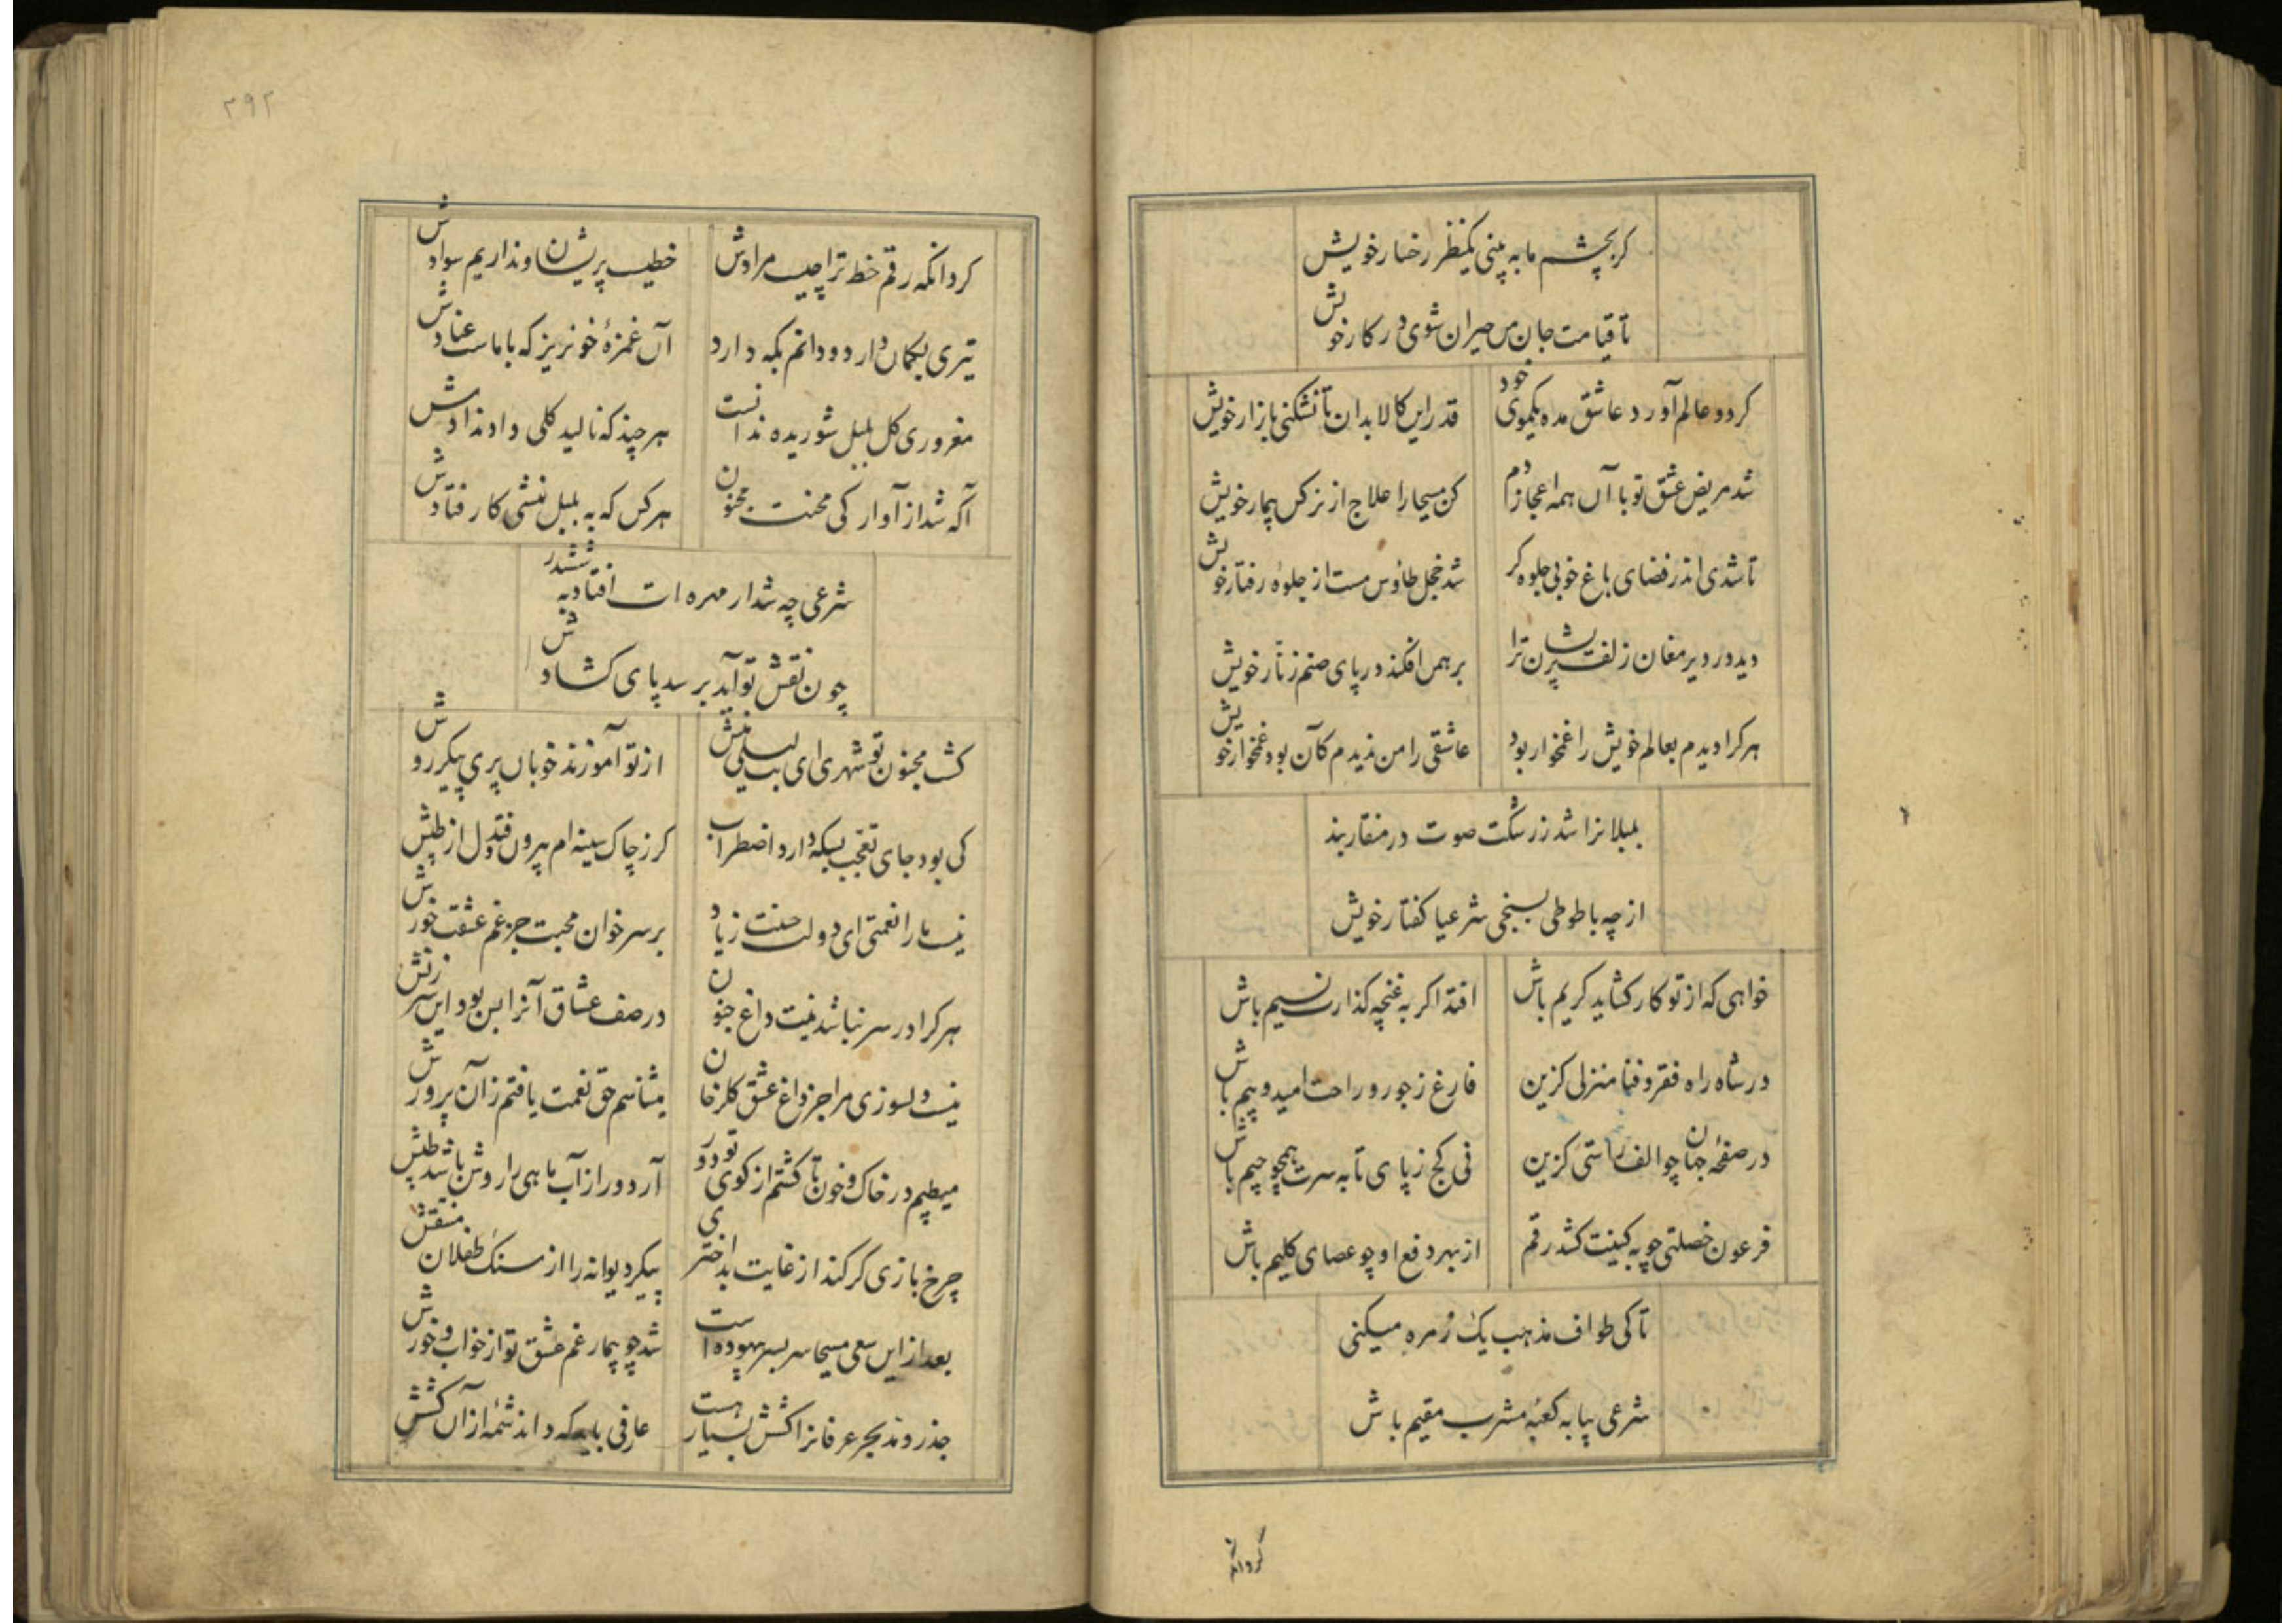 کر بچشم ما به بینی یکنظر رخسار خویش
تا قیامت جان من حیران شوی در کار خویش
کر دو عالم آورد عاشق مده یکموی خود
قدر این کالا بدان تا نشکنی بازار خویش
شد مریض عشق تو با آن همه اعجاز دم
کن مسیحا را علاج از نرکس بیمار خویش
تا شدی اندر فضای باغ خوبی جلوه کر
شد خجل طاوس مست از جلوه رفتار خویش
دید در دیر مغان زلف پریشان ترا
برهمن افکند در پای صنم زنار خویش
هر کرا دیدم بعالم خویش را غمخوار بود
عاشقی را من ندیدم کآن بود غمخوار خویش
بلبلانرا شد ز رشکت صوت در منقار بند
از چه با طوطی بسنجی شرعیا کفتار خویش
خواهی که از تو کار کشاید کریم باش
افتد اکر به غنچه کذارت نسیم باش
در شاه راه فقر و فنا منزلی کزین
فارغ ز جور و راحت امید و بیم باش
در صفحهٔ جهان چو الف راستی کزین
نی کج ز پای تا به سرت همچو جیم باش
فرعون خصلتی چو به کینت کشد رقم
از بهر دفع او چو عصای کلیم باش
تا کی طواف مذهب یک زمره میکنی
شرعی بیا به کعبهٔ مشرب مقیم باش
کردآنکه
۲۹۲
کرد آنکه رقم خط ترا چیست مرادش
خطیست پریشان و نداریم سوادش
تیری بکمان دارد و دانم بکه دارد
آن غمزهٔ خونریز که با ماست عنادش
مغروری کل بلبل شوریده ندانست
هر چند که نالید کلی داد ندادش
آکه شد از آوارکی محنت مجنون
هر کس که به بلبل منشی کار فتادش
شرعی چه شد ار مهره ات افتاد به ششدر
چون نقش تو آید برسد پای کشادش
کشت مجنون تو شهری ای بت لیلی منش
از تو آموزند خوبان پری پیکر روش
کی بود جای تعجب بسکه دارد اضطراب
کر ز چاک سینه ام بیرون فتد دل از طپش
نیست ما را نعمتی ای دولت حسنت زیاد
بر سر خوان محبت جز غم عشقت خورش
هر کرا در سر نباشد نیست داغ جنون
در صف عشاق آنرا بس بود این سرزنش
نیست دلسوزی مرا جز داغ عشق کلرخان
میشناسم حق نعمت یافتم زآن پرورش
میطپم در خاک و خون تا کشتم از کوی تو دور
آر دور از آب ماهی را روش باشد طپش
چرخ بازی کر کند از غایت بد اختری
پیکر دیوانه را از سنک طفلان منقش
بعد از این سعی مسیحا سر بسر بیهوده است
شد چو بیمار غم عشق تو از خواب و خورش
جذر و مد بحر عرفانرا کشش بسیار هست
عارفی باید که داند شمهٔ از آن کشش